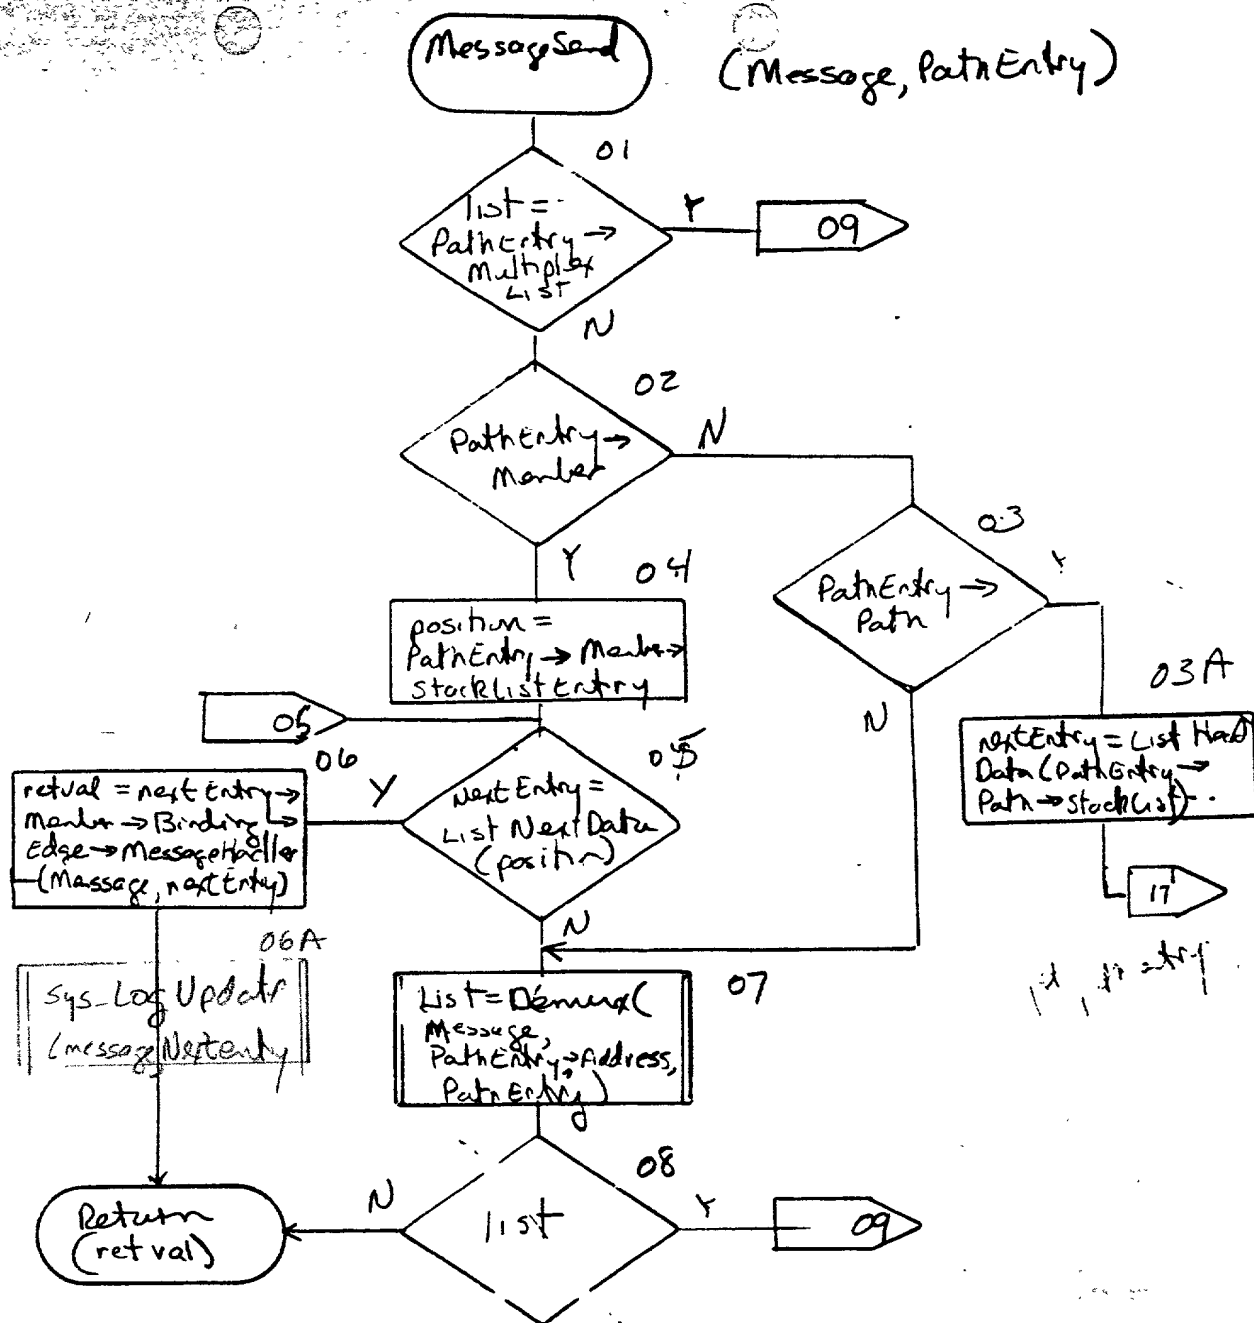 MessageSend
(Message, PathEntry)
01
list =
PathEntry →
Multiplex
List
Y
09
N
02
PathEntry →
Member
N
Y
03
PathEntry →
Path
Y
N
03A
nextEntry = List Head
Data (PathEntry →
Path → StackList)
17
04
position =
PathEntry → Member →
StackListEntry
05
05
NextEntry =
List NextData
(position)
Y
N
06
retval = nextEntry →
Member → Binding →
Edge → MessageHadler
(Message, nextEntry)
06A
sys_Log Update
(message, Nextentry
07
List = Demux(
Message,
PathEntry → Address,
PathEntry)
08
list
N
Y
09
Return
(retval)